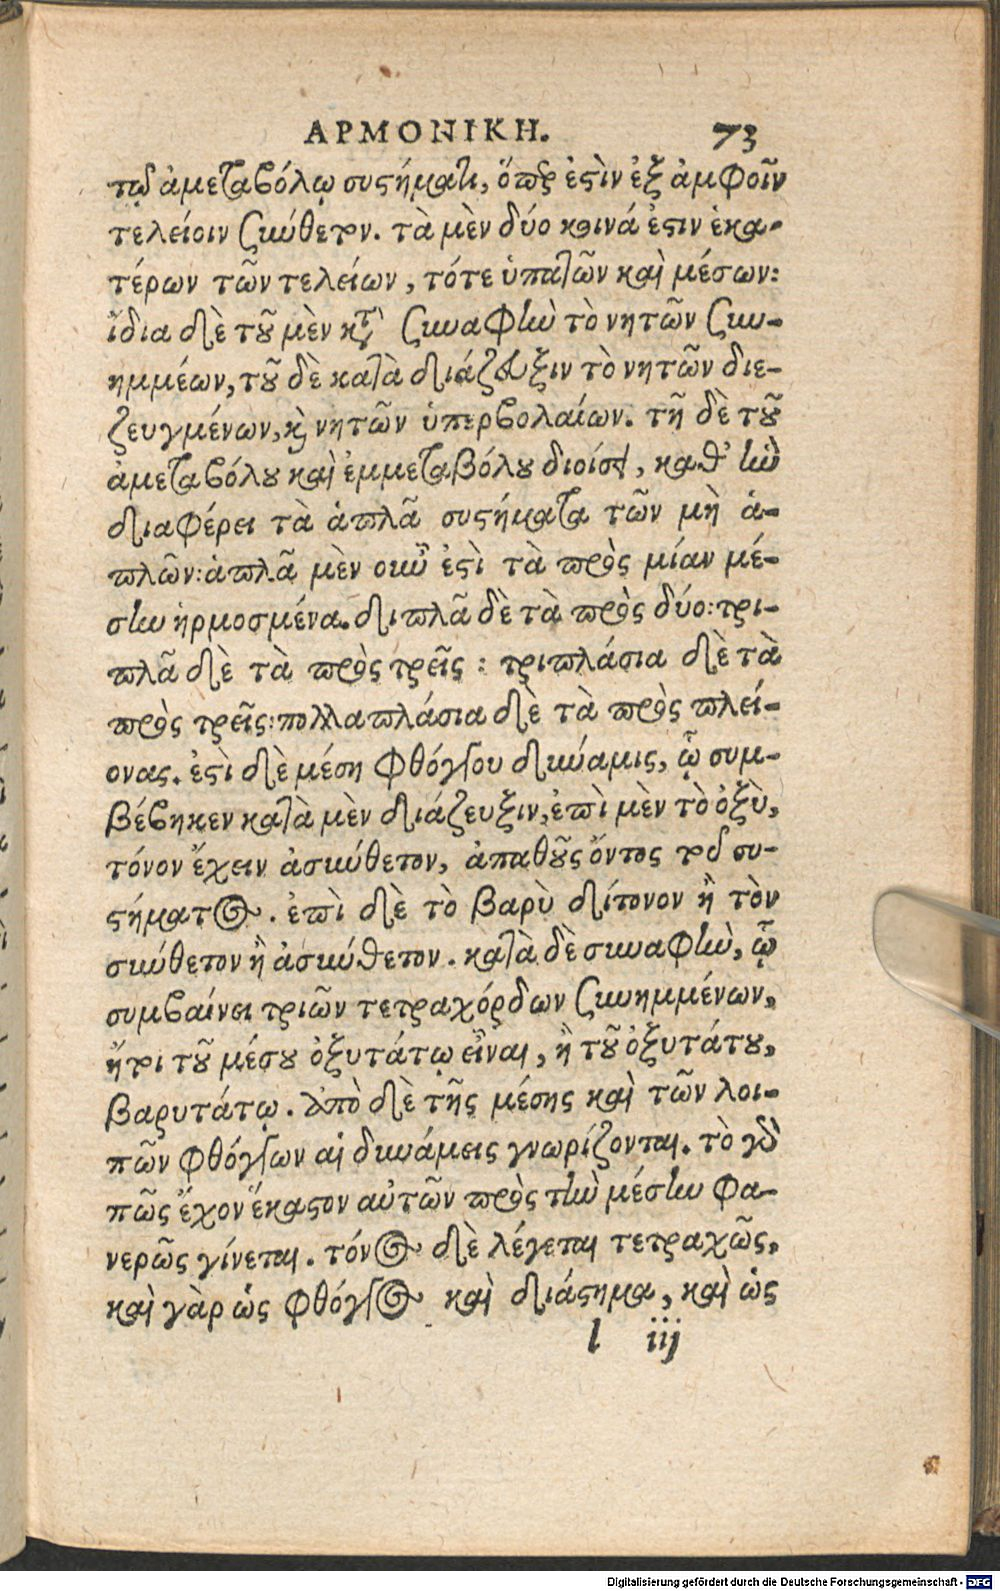 ΑΡΜΟΝΙΚΗ. 73
τῷ ἀμεταβόλῳ συστήματι, ὅπερ ἐστὶν ἐξ ἀμφοῖν
τελείοιν σύνθετον. τὰ μὲν δύο κοινά ἐστιν ἑκα-
τέρων τῶν τελείων, τότε ὑπατῶν καὶ μέσων:
ἴδια δὲ τοῦ μὲν κατὰ συναφὴν τὸ νητῶν συν-
ημμέων, τοῦ δὲ κατὰ διάζευξιν τὸ νητῶν διε-
ζευγμένων, καὶ νητῶν ὑπερβολαίων. τῇ δὲ τοῦ
ἀμεταβόλου καὶ ἐμμεταβόλου διοίσει, καθ' ἣν
διαφέρει τὰ ἁπλᾶ συστήματα τῶν μὴ ἁ-
πλῶν: ἁπλᾶ μὲν οὖν ἐστὶ τὰ πρὸς μίαν μέ-
σην ἡρμοσμένα. διπλᾶ δὲ τὰ πρὸς δύο: τρι-
πλᾶ δὲ τὰ πρὸς τρεῖς: τριπλάσια δὲ τὰ
πρὸς τρεῖς: πολλαπλάσια δὲ τὰ πρὸς πλεί-
ονας. ἐστὶ δὲ μέση φθόγγου δύναμις, ᾧ συμ-
βέβηκεν κατὰ μὲν διάζευξιν, ἐπὶ μὲν τὸ ὀξὺ,
τόνον ἔχειν ἀσύνθετον, ἀπαθοῦς ὄντος τοῦ συ-
στήματος. ἐπὶ δὲ τὸ βαρὺ δίτονον ἢ τὸν
σύνθετον ἢ ἀσύνθετον. κατὰ δὲ συναφὴν, ᾧ
συμβαίνει τριῶν τετραχόρδων συνημμένων,
ἤτοι τοῦ μέσου ὀξυτάτῳ εἶναι, ἢ τοῦ ὀξυτάτου,
βαρυτάτῳ. ἀπὸ δὲ τῆς μέσης καὶ τῶν λοι-
πῶν φθόγγων αἱ δυνάμεις γνωρίζονται. τὸ γὰρ
πῶς ἔχον ἕκαστον αὐτῶν πρὸς τὴν μέσην φα-
νερῶς γίνεται. τόνος δὲ λέγεται τετραχῶς,
καὶ γὰρ ὡς φθόγγος καὶ διάστημα, καὶ ὡς
l iij
Digitalisierung gefördert durch die Deutsche Forschungsgemeinschaft - DFG